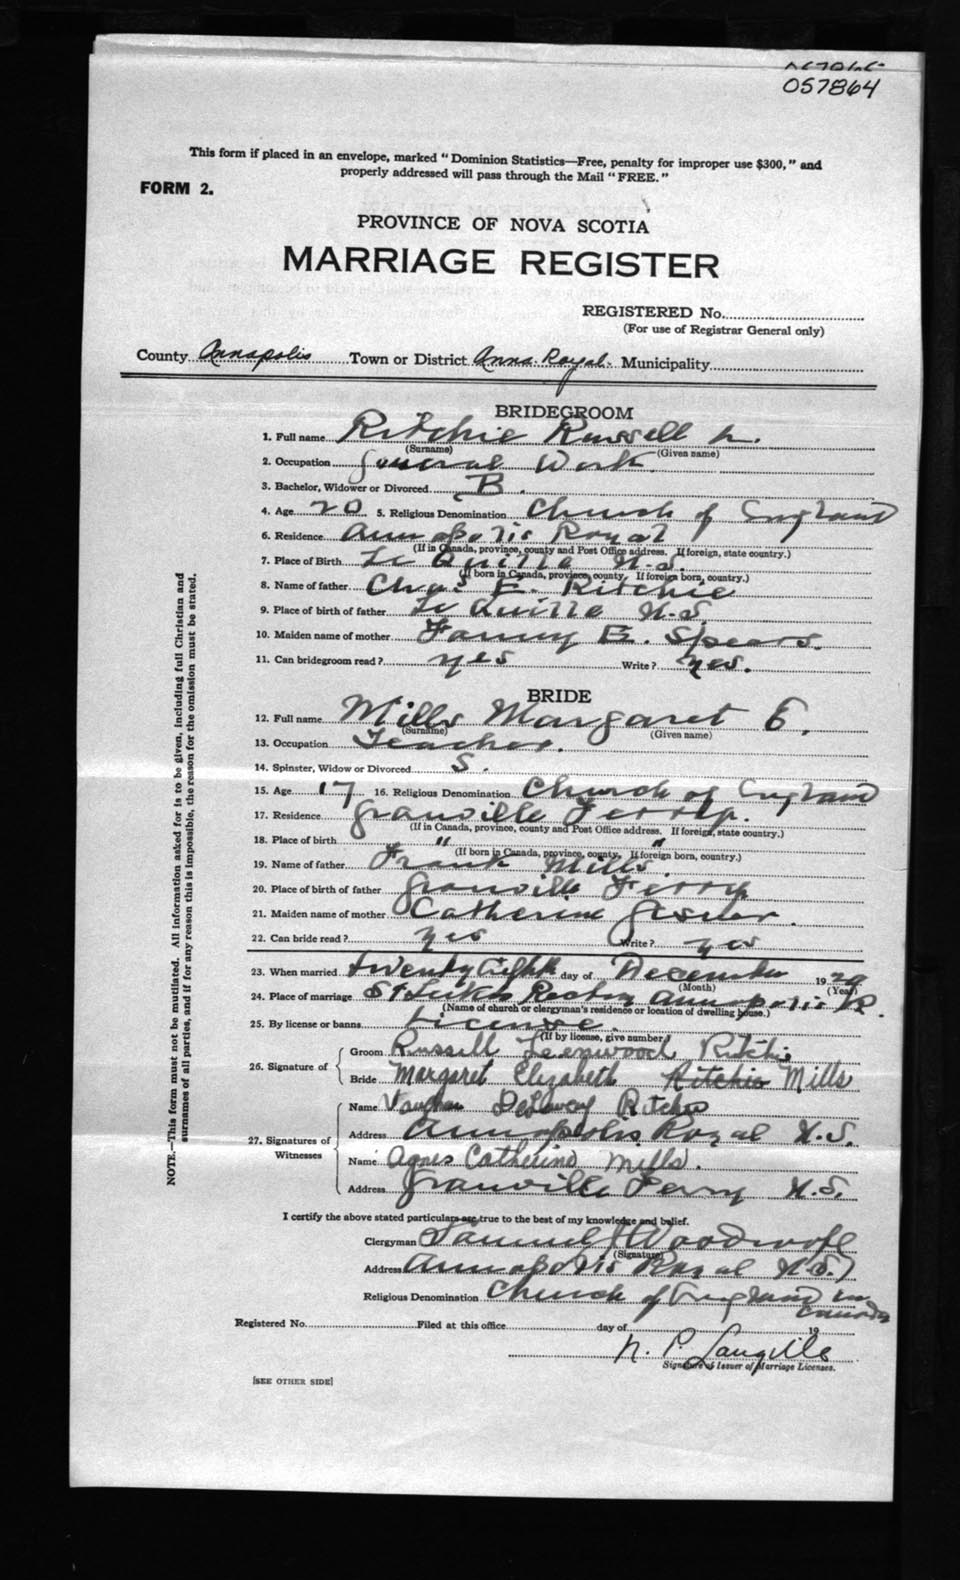 057864
This form if placed in an envelope, marked "Dominion Statistics—Free, penalty for improper use $300," and
properly addressed will pass through the Mail "FREE."
FORM 2.
PROVINCE OF NOVA SCOTIA
MARRIAGE REGISTER
REGISTERED No.
(For use of Registrar General only)
County Annapolis Town or District Anna. Royal. Municipality
BRIDEGROOM
1. Full name Ritchie Russell
(Surname) (Given name)
2. Occupation General Work
3. Bachelor, Widower or Divorced B.
4. Age 20 5. Religious Denomination Church of England
6. Residence Annapolis Royal
(If in Canada, province, county and Post Office address. If foreign, state country.)
7. Place of Birth Le Quille N.S.
(If born in Canada, province, county. If foreign born, country.)
8. Name of father Chas. E. Ritchie
9. Place of birth of father Le Quille N.S.
10. Maiden name of mother Fanny E. Spears.
11. Can bridegroom read? yes Write? yes.
BRIDE
12. Full name Mills Margaret E.
(Surname) (Given name)
13. Occupation Teacher.
14. Spinster, Widow or Divorced S.
15. Age 17 16. Religious Denomination Church of England
17. Residence Granville Ferry.
(If in Canada, province, county and Post Office address. If foreign, state country.)
18. Place of birth " "
(If born in Canada, province, county. If foreign born, country.)
19. Name of father Frank Mills.
20. Place of birth of father Granville Ferry
21. Maiden name of mother Catherine Gesner.
22. Can bride read? yes Write? yes
23. When married twenty eighth day of December 1929
(Month) (Year)
24. Place of marriage St Lukes Rectory Annapolis R.
(Name of church or clergyman's residence or location of dwelling house.)
25. By license or banns License.
(If by license, give number)
26. Signature of
Groom Russell Ritchie
Bride Margaret Elizabeth Ritchie Mills
27. Signatures of Witnesses
Name Vaughan DeLancey Ritchie
Address Annapolis Royal N.S.
Name Agnes Catherine Mills.
Address Granville Ferry N.S.
I certify the above stated particulars are true to the best of my knowledge and belief.
Clergyman Samuel J Woodroofe
(Signature)
Address Annapolis Royal N.S.
Religious Denomination Church of England in
Canada
Registered No. Filed at this office day of 19
N. P. Langille
Signature of Issuer of Marriage Licenses.
[SEE OTHER SIDE]
NOTE.—This form must not be mutilated. All information asked for is to be given, including full Christian and
surnames of all parties, and if for any reason this is impossible, the reason for the omission must be stated.